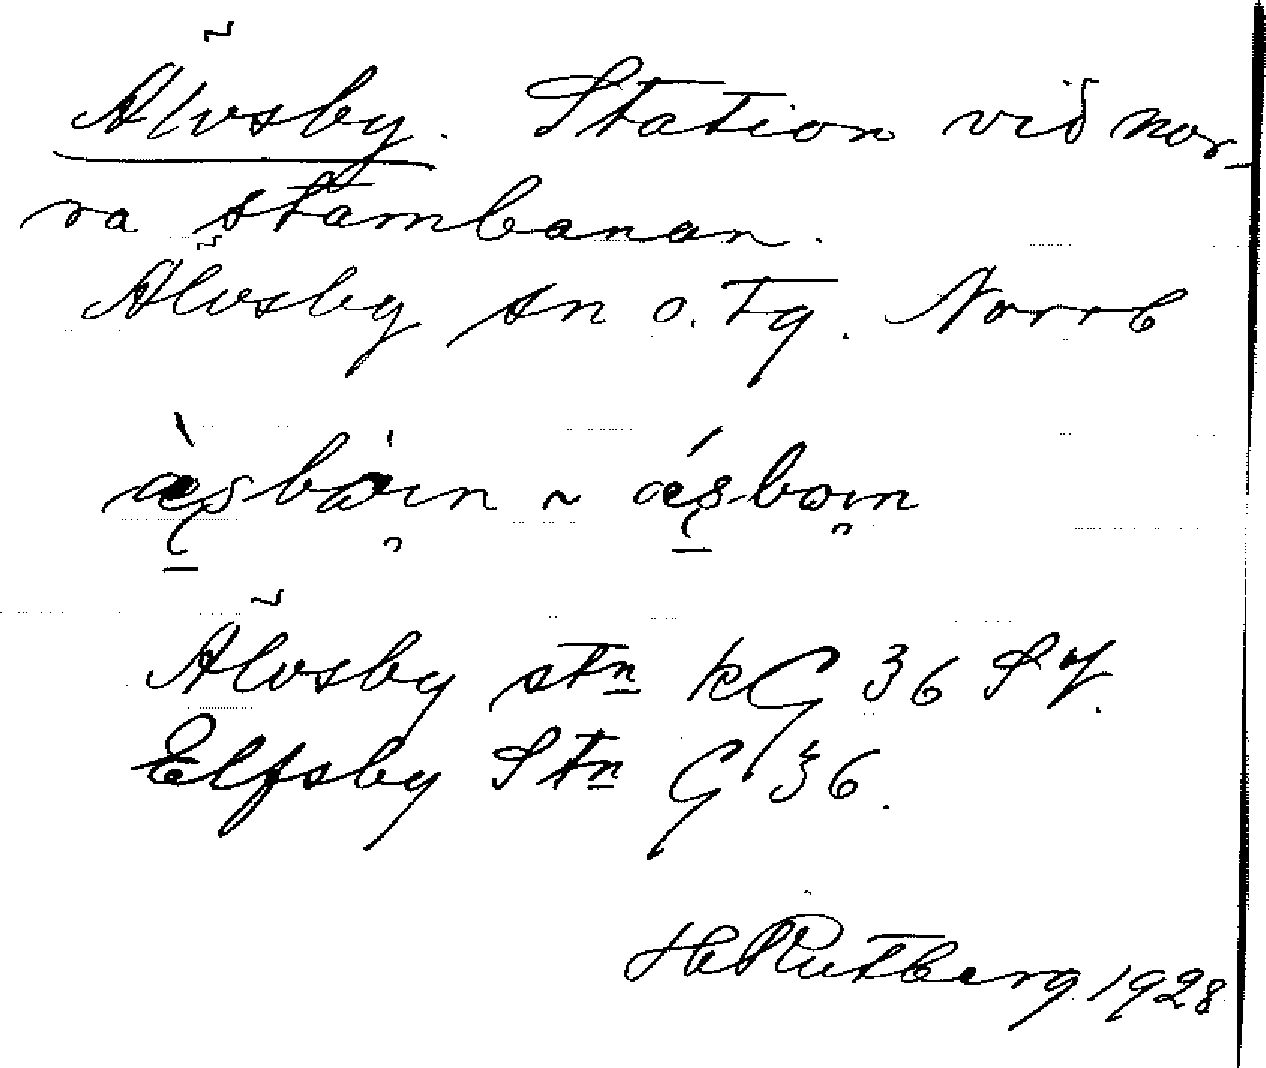 Älvsby. Station vid nor-
ra stambanan.
Älvsby sn o. tg. Norrb
Älvsby stn kG 36 SJ.
Elfsby Stn G 36.
H Rutberg 1928